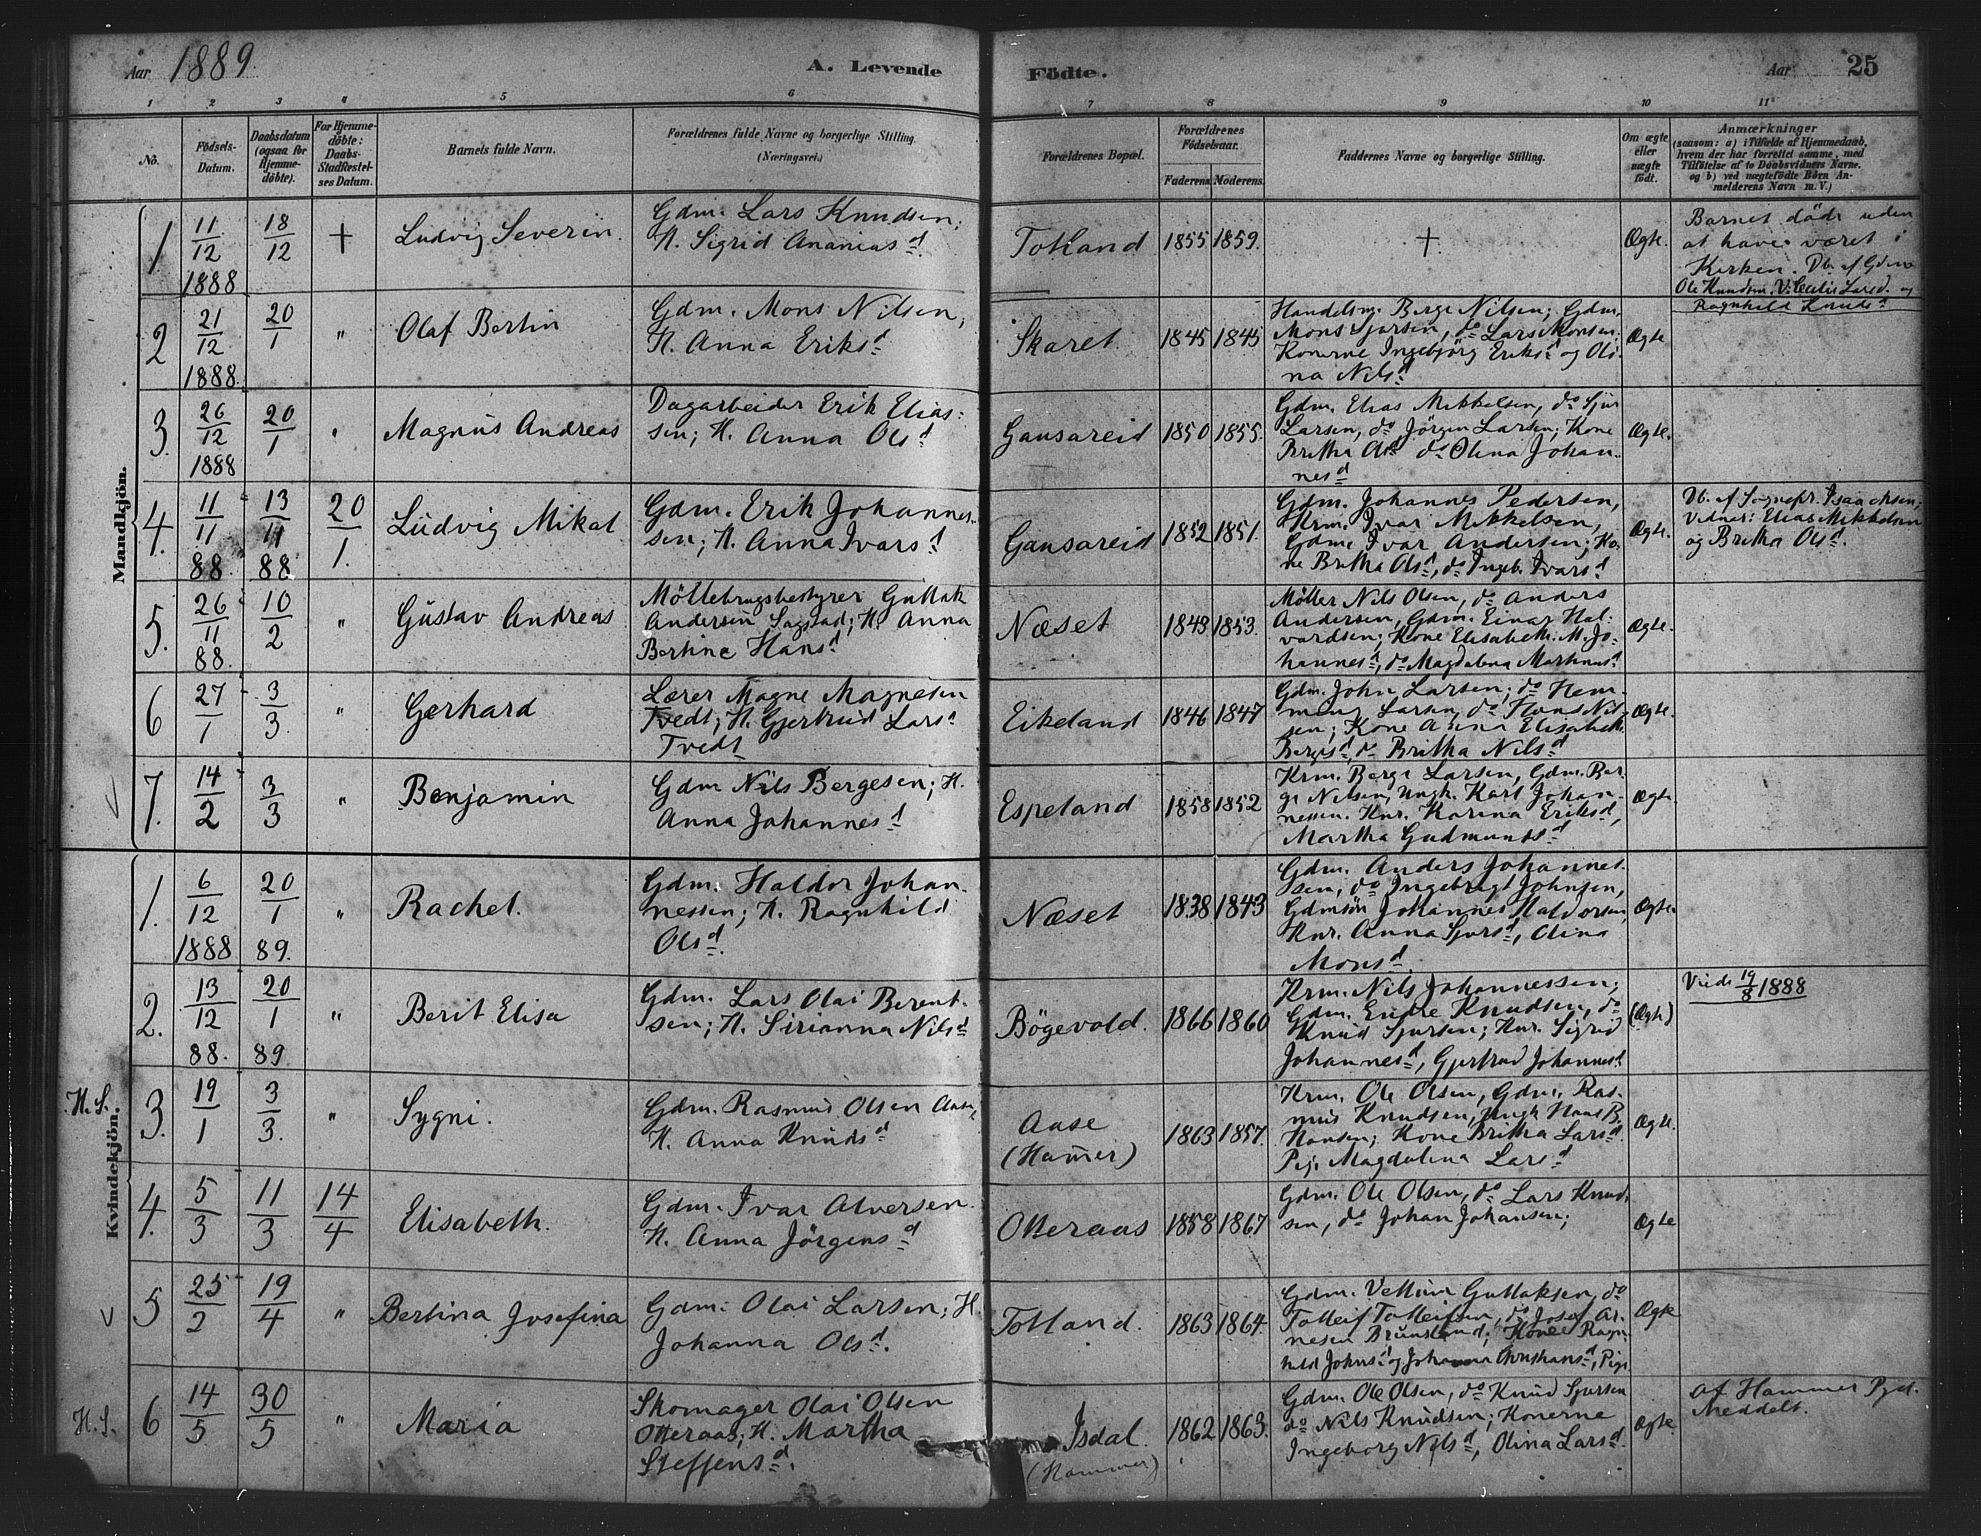 Aar 1889.
A. Levende
Födte.
Aar
25
1 2 3 4 5 6 7 8 9 10 11
No.
Födsels-
Datum.
Daabsdatum
(ogsaa for
Hjemme-
döbte).
For Hjemme-
döbte:
Daabs-
Stadfæstel-
ses Datum.
Barnets fulde Navn.
Forældrenes fulde Navne og borgerlige Stilling.
(Næringsvei.)
Forældrenes Bopæl.
Forældrenes
Födselsaar.
Faderens. Moderens.
Faddernes Navne og borgerlige Stilling.
Om ægte
eller
uægte
födt.
Anmærkninger
(saasom: a) i Tilfælde af Hjemmedaab,
hvem der har forrettet samme, med
Tilföielse af to Daabsvidners Navne.
og b) ved uægtefödte Börn An-
melderens Navn m. V.)
Mandkjön.
1. 11/12 1888 18/12 +
Ludvig Severin.
Gdm. Lars Knudsen;
H. Sigrid Ananiasd.
Totland 1855 1859. + Ægte.
Barnet döde uden
at have været i
Kirken. Db. af Gdm
Ole Knudsen. V: Larsd. og
Ragnhild Knudsd
2 21/12 1888. 20/1 "
Olaf Bertin
Gdm. Mons Nilsen;
H. Anna Eriksd
Skaret. 1845 1845
Handelsm. Berge Nilsen; Gdm.
Mons Sjursen, do Lars Monsen.
Konerne Ingebjörg Eriksd og Oli-
na Nilsd
Ægte
3. 26/12 1888 20/1 "
Magnus Andreas
Dagarbeider Erik Elias-
sen; H. Anna Olsd
Gansareid 1850 1855.
Gdm. Elias Mikkelsen, do Sjur
Larsen, do Jörgen Larsen; Kone
Britha Olsd do Olina Johan-
nesd
Ægte.
4. 11/11 88 13/11 88. 20/1.
Ludvig Mikal
Gdm. Erik Johannes-
sen; H. Anna Ivarsd
Gansareid 1852 1851.
Gdm. Johannes Pedersen,
Krm. Ivar Mikkelsen,
Gdm. Ivar Andersen; Ko-
ne Britha Olsd, do Ingeb. Ivarsd
Ægte.
Db. af Sognepr. Isaachsen;
Vidner: Elias Mikkelsen
og Britha Olsd.
5. 26/11 88. 10/2 "
Gustav Andreas
Möllebrugsbestyrer Guttak
Andersen Sagstad; H. Anna
Bertine Hansd
Næset 1849 1853.
Möller Nils Olsen, do Anders
Andersen, Gdm. Einar Hal-
vardsen; Kone Elisabeth M. Jo-
hannesd, do Magdalena Martinusd
Ægte.
6 27/1 3/3. "
Gerhard
Lærer Magne Magnesen
Tvedt; H. Gjertrud Larsd
Tvedt
Eikeland 1846 1847
Gdm. John Larsen; do Hem-
ming Larsen, do Hans Nil-
sen; Kone Anna Elisabeth
Bergsd, do Britha Nilsd
Ægte.
7. 14/2 3/3 "
Benjamin
Gdm Nils Bergesen; H.
Anna Johannesd
Espeland 1858 1852
Krm. Berge Larsen, Gdm. Ber-
ge Nilsen, Ungk. Karl Johan-
nessen. Knr. Karina Eriksd,
Martha Gudmundsd
Ægte
Kvindekjön.
1. 6/12 1888 20/1 89. "
Rachel.
Gdm. Haldor Johan-
nessen; H. Ragnhild
Olsd.
Næset 1838. 1843
Gdm. Anders Johannes-
sen, do Ingebrigt Johnsen,
Gdmsön Johannes Haldorsen
Knr. Anna Sjursd, Olina
Monsd.
Ægte.
2. 13/12 88. 20/1 89. "
Berit Elisa
Gdm. Lars Olai Berent-
sen; H. Sirianna Nilsd
Bögevold. 1866 1860
Krm. Nils Johannessen;
Gdm. Endre Knudsen, do
Knud Sjursen; Knr. Sigrid
Johannesd, Gjertrud Johannesd.
(Ægte)
Viede 19/8 1888
H. S.
3. 19/1 3/3. "
Sygni.
Gdm. Rasmus Olsen Aase;
H. Anna Knudsd
Aase
(Hamer)
1863 1857.
Krm. Ole Olsen, Gdm. Ras-
mus Knudsen, Ungk Hans B.
Hansen; Kone Britha Larsd.
Pige Magdalena Larsd
Ægte.
4. 5/3 11/3 14/4
Elisabeth.
Gdm. Ivar Alversen.
H. Anna Jörgensd
Otteraas 1858 1867.
Gdm. Ole Olsen, do Lars Knud-
sen, do Johan Johansen;
Ægte
5 25/2 19/4 "
Bertina Josefina
Gdm. Olai Larsen; H.
Johanna Olsd.
Totland. 1863 1864.
Gdm. Guttaksen, do
Tolleif Tolleifsen, do Josef Ar-
nesen Brunsland; Kone Ragn-
hild Johnsd og Johanna Christiansd, Pige
Ægte
H. S.
6 14/5 30/5 "
Maria
Skomager Olai Olsen
Otteraas; H. Martha
Steffensd.
Isdal.
(Hammer)
1862 1863.
Gdm. Ole Olsen, do Knud Sjursen
do Nils Knudsen; Konerne
Ingeborg Nilsd, Olina Larsd.
Ægte.
af Hammer Pgd.
Meddelt.